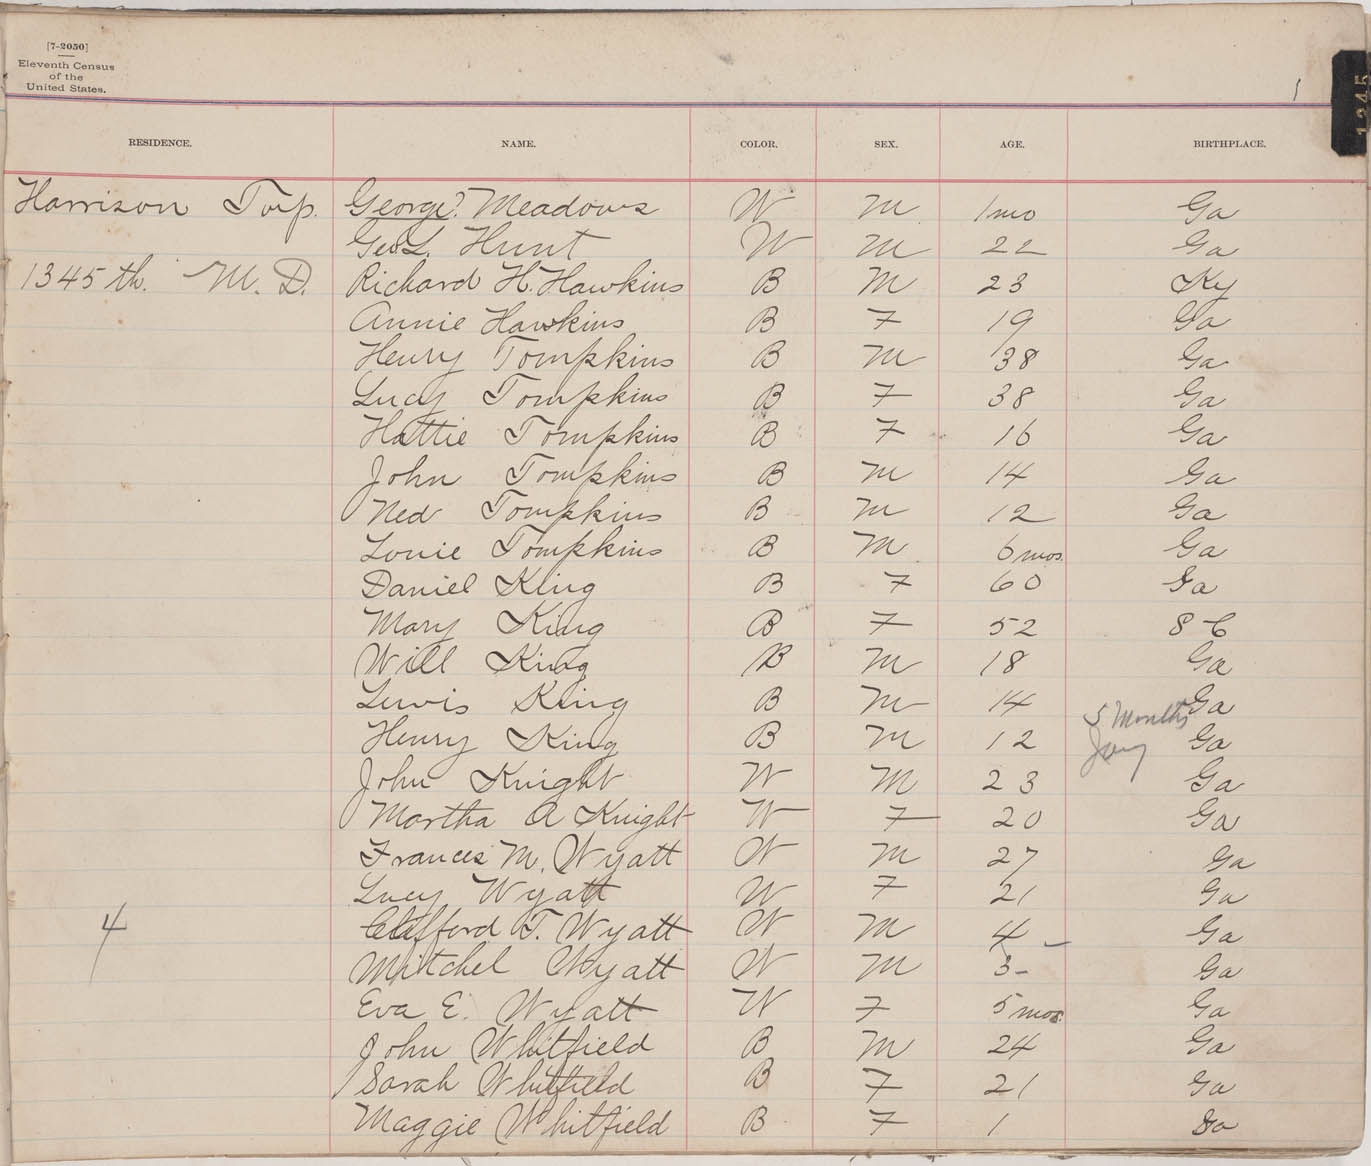 [7-2050]
Eleventh Census
of the
United States.
1345
RESIDENCE. NAME. COLOR. SEX. AGE. BIRTHPLACE.
Harrison Twp. George? Meadows W M 1 mo Ga
Geo L. Hunt W M 22 Ga
1345 th. M. D. Richard H. Hawkins B M 23 Ky
Annie Hawkins B F 19 Ga
Henry Tompkins B M 38 Ga
Lucy Tompkins B F 38 Ga
Hattie Tompkins B F 16 Ga
John Tompkins B M 14 Ga
Ned Tompkins B M 12 Ga
Louie Tompkins B M 6 mos. Ga
Daniel King B F 60 Ga
Mary King B F 52 S C
Will King B M 18 Ga
Lewis King B M 14 Ga
5 Months
Henry King B M 12 Ga
John Knight W M 23 Ga
Martha A Knight W F 20 Ga
Frances M. Wyatt W M 27 Ga
Lucy Wyatt W F 21 Ga
4 Clifford T. Wyatt W M 4 Ga
Mitchel Wyatt W M 3 Ga
Eva E. Wyatt W F 5 mos. Ga
John Whitfield B M 24 Ga
Sarah Whitfield B F 21 Ga
Maggie Whitfield B F 1 Ga